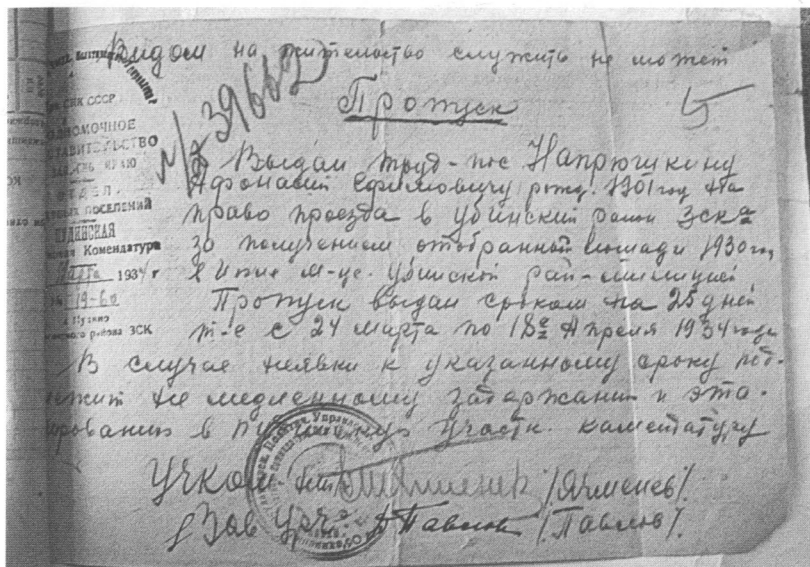 Видом на жительство служить не может
Пропуск
№ 39662
СНК СССР
ЗАП.-СИБ. КРАЮ
ОТДЕЛ
ПОСЕЛЕНИЙ
ПУДИНСКАЯ
Комендатура
Марта 1934 г
19-60
района ЗСК
Выдан труд-пос Напрюшкину
Афонасий Ефимовичу рожд. 1901 год на
право проезда в Убинский район ЗСКа
за получением отобранной лошади 1930 г.
в Июне м-це. Убинской рай-милицией
Пропуск выдан сроком на 25 дней
т-е с 24 марта по 18е Апреля 1934 года
В случае неявки к указанному сроку под-
лежит не медленному задержанию и эта-
пированию в участк. каментатуру
Участк. /Ячменев/.
Зав Урч. Павлов /Павлов/.